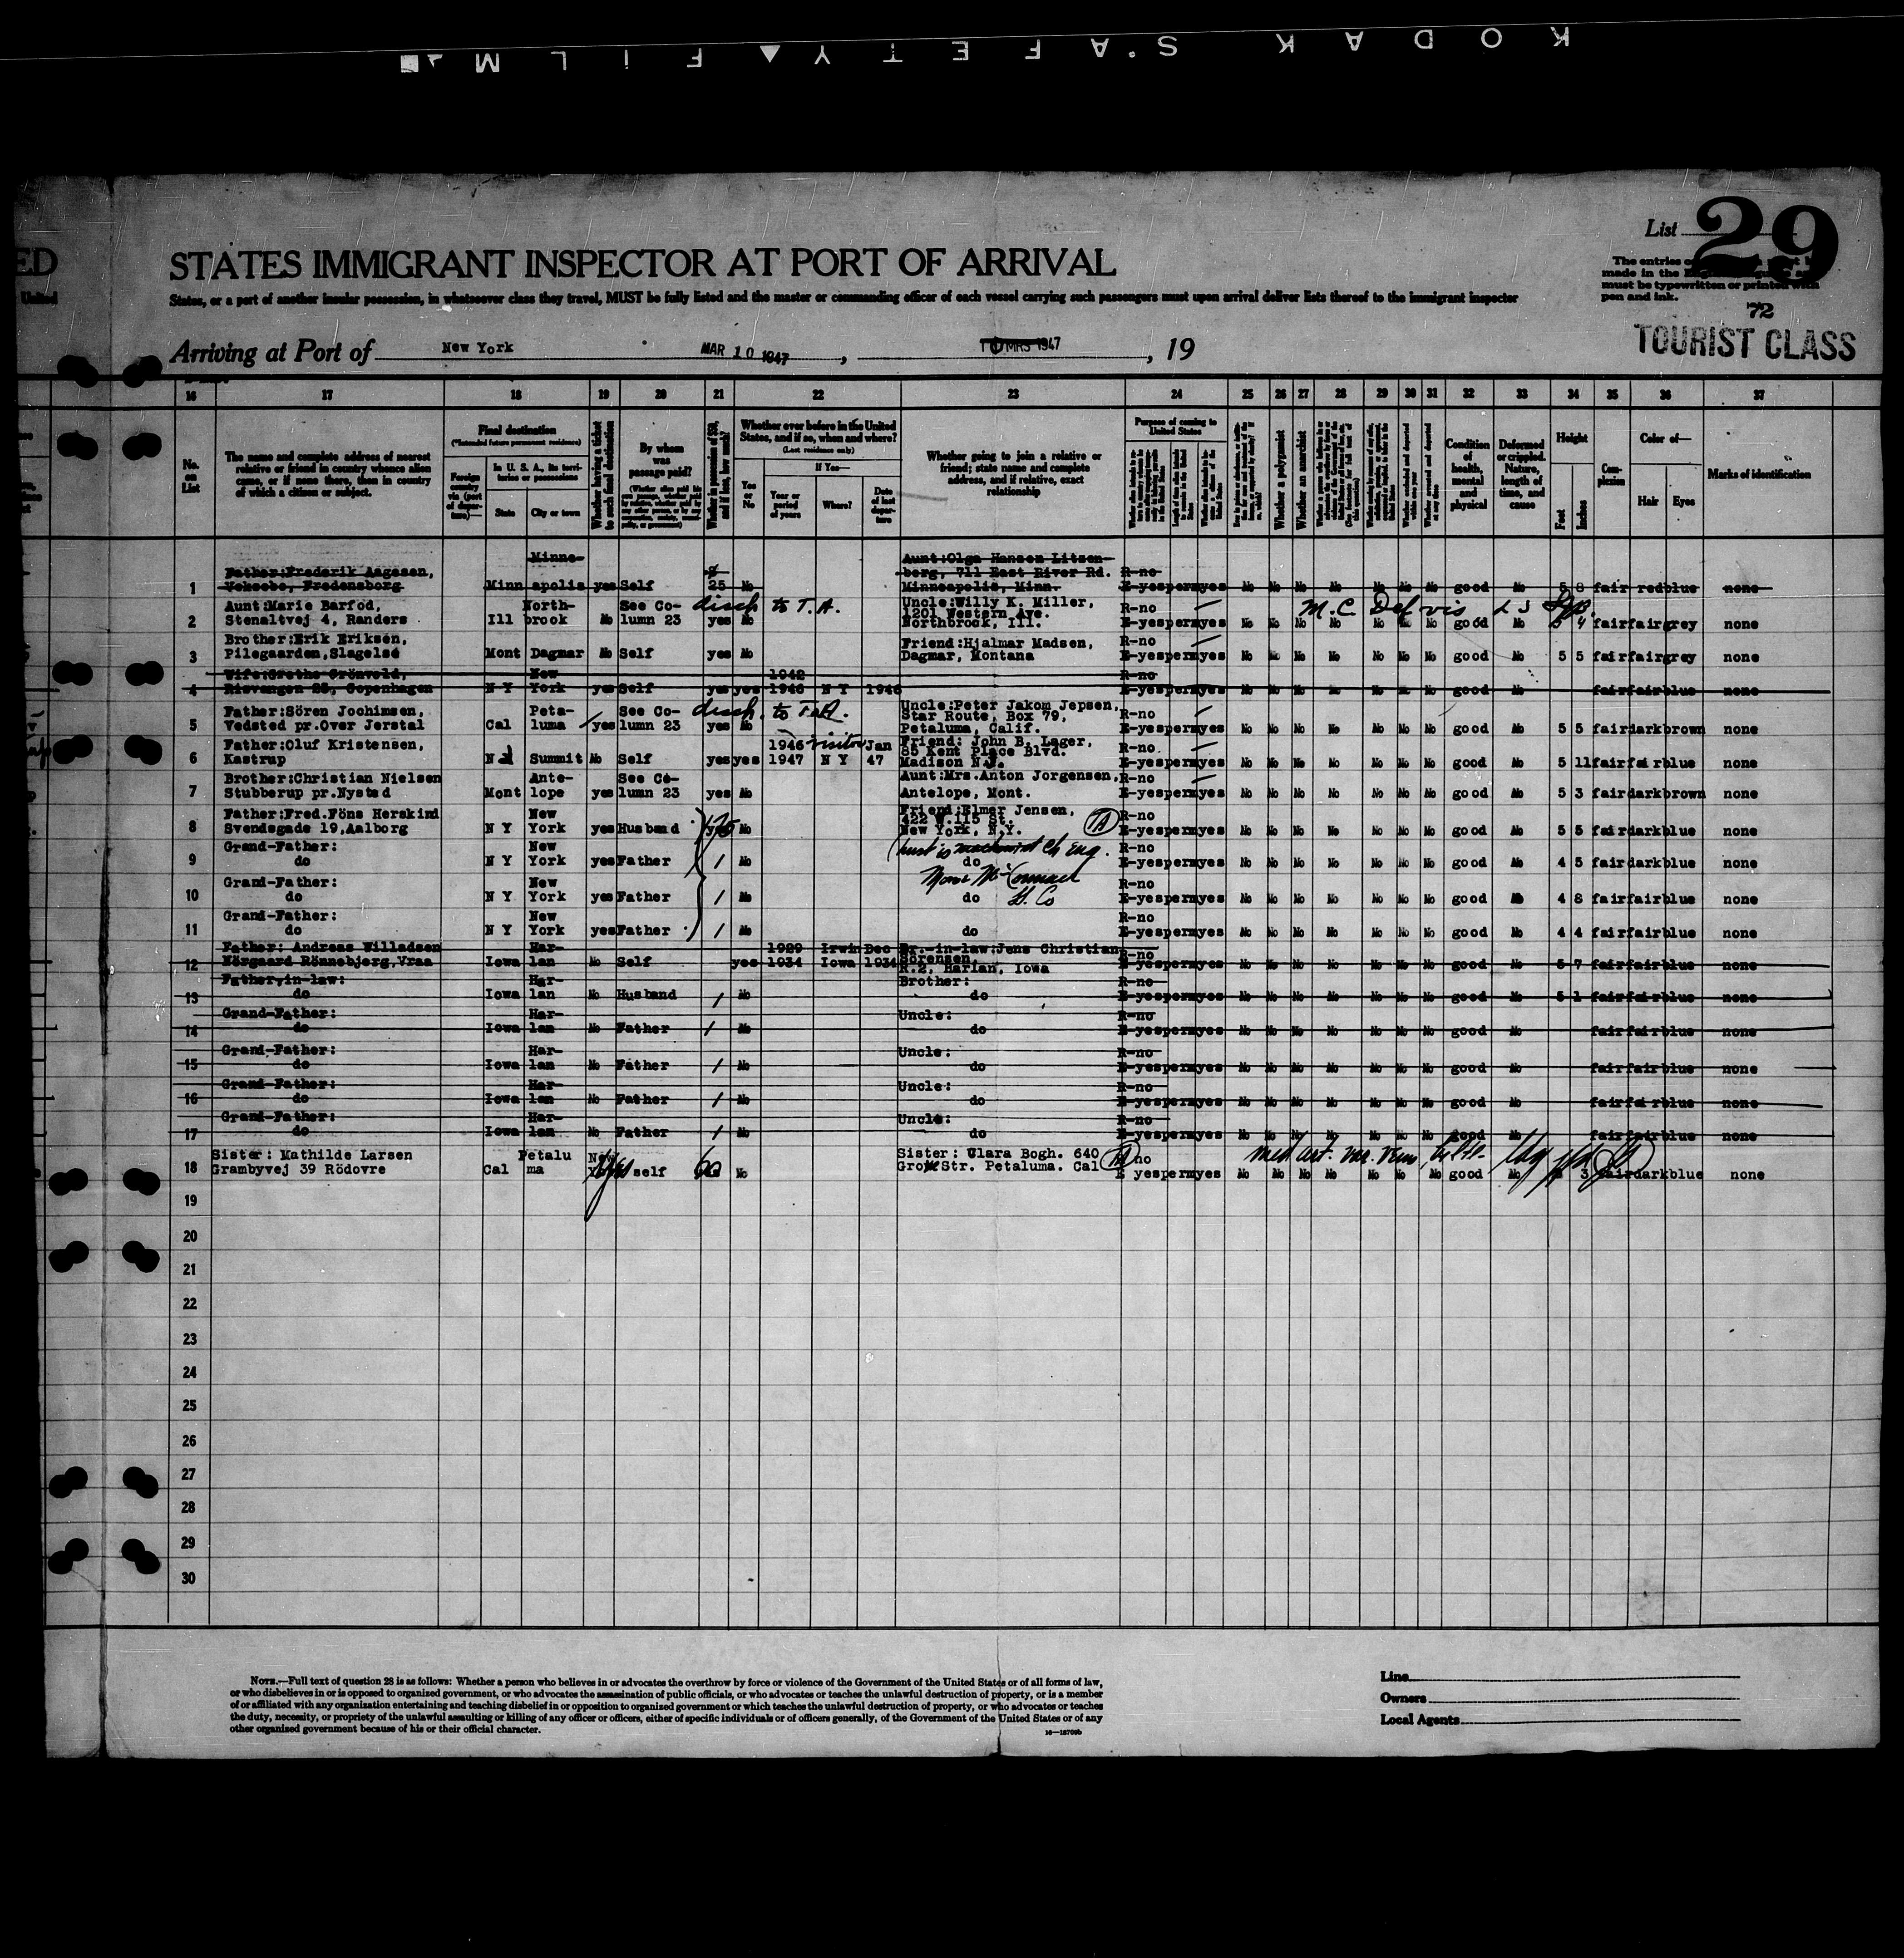 KODAK SAFETY FILM
ED
United
List 29
The entries
made in the
must be typewritten or printed with
pen and ink.
72
TOURIST CLASS
STATES IMMIGRANT INSPECTOR AT PORT OF ARRIVAL
States, or a part of another insular possession, in whatsoever class they travel, MUST be fully listed and the master or commanding officer of each vessel carrying such passengers must upon arrival deliver lists thereof to the immigrant inspector
Arriving at Port of New York MAR 10 1947, 10 MRS 1947, 19
16 17 18 19 20 21 22 23 24 25 26 27 28 29 30 31 32 33 34 35 36 37
No. on List
The name and complete address of nearest relative or friend in country whence alien came, or if none there, then in country of which a citizen or subject.
Final destination
(*Intended future permanent residence)
Foreign country via (port of departure)
In U. S. A., its territories or possessions
State City or town
Whether having a ticket to such final destination
By whom was passage paid?
Whether in possession of $50, and if less, how much?
Whether ever before in the United States, and if so, when and where?
(Last residence only)
Yes or No
If Yes—
Year or period of years
Where?
Date of last departure
Whether going to join a relative or friend; state name and complete address, and if relative, exact relationship
Purpose of coming to United States
Whether a polygamist
Whether an anarchist
Condition of health, mental and physical
Deformed or crippled. Nature, length of time, and cause
Height
Feet Inches
Complexion
Color of—
Hair Eyes
Marks of identification
Minne- Aunt:Olga Hansen Litzen-
Father:Frederik Aagesen, berg, 711 East River Rd. R-no
1 Veksebo, Fredensborg Minn apolis yes Self 25 No Minneapolis, Minn. E-yes perm yes No No No No No No No good No 5 8 fair red blue none
Aunt:Marie Barfod, North- See Co- disch to T.A. Uncle:Willy K. Miller, R-no M.C. Def vis
1201 Western Ave.
2 Stenaltvej 4, Randers Ill brook No lumn 23 yes No Northbrook, Ill. E-yes perm yes No No No No No No No good No 5 4 fair fair grey none
Brother:Erik Eriksen, Friend:Hjalmar Madsen, R-no
3 Pilegaarden,Slagelse Mont Dagmar No Self yes No Dagmar, Montana E-yes perm yes No No No No No No No good No 5 5 fair fair grey none
Wife:Grethe Grönvold, New 1942 R-no
4 Risvangen 28, Copenhagen N Y York yes Self yes yes 1946 N Y 1946 E-yes perm yes No No No No No No No good No fair fair blue none
Father:Sören Jochimsen, Peta- See Co- disch. to T.A. Uncle:Peter Jakom Jepsen, R-no
Star Route, Box 79,
5 Vedsted pr.Over Jerstal Cal luma yes lumn 23 yes No Petaluma, Calif. E-yes perm yes No No No No No No No good No 5 5 fair dark brown none
Father:Oluf Kristensen, 1946 visitor Jan Friend: John B. Lager, R-no.
85 Kent Place Blvd.
6 Kastrup N J Summit No Self yes yes 1947 N Y 47 Madison N.J. E-yes perm yes No No No No No No No good No 5 11 fair fair blue none
Brother:Christian Nielsen Ante- See Co- Aunt:Mrs.Anton Jorgensen, R-no
7 Stubberup pr.Nysted Mont lope yes lumn 23 yes No Antelope, Mont. E-yes perm yes No No No No No No No good No 5 3 fair dark brown none
Father:Fred.Föns Herskind New Friend:Elmer Jensen, R-no
422 W.115 St.
8 Svendsgade 19,Aalborg N Y York yes Husband 175 No New York, N.Y. TA E-yes perm yes No No No No No No No good No 5 5 fair dark blue none
Grand-Father: New R-no
9 do N Y York yes Father 1 No do E-yes perm yes No No No No No No No good No 4 5 fair dark blue none
Grand-Father: New R-no
10 do N Y York yes Father 1 No do E-yes perm yes No No No No No No No good No 4 8 fair fair blue none
Grand-Father: New R-no
11 do N Y York yes Father 1 No do E-yes perm yes No No No No No No No good No 4 4 fair fair blue none
Father: Andreas Willadsen Har- 1929 Irwin Dec Br.-in-law:Jens Christian R-no
Sörensen,
12 Nörgaard Rönnebjerg,Vraa Iowa lan No Self yes 1934 Iowa 1934 R.2, Harlan, Iowa E-yes perm yes No No No No No No No good No 5 7 fair fair blue none
Father,in-law: Har- Brother: R-no
13 do Iowa lan No Husband 1 No do E-yes perm yes No No No No No No No good No 5 1 fair fair blue none
Grand-Father: Har- Uncle: R-no
14 do Iowa lan No Father 1 No do E-yes perm yes No No No No No No No good No fair fair blue none
Grand-Father: Har- Uncle: R-no
15 do Iowa lan No Father 1 No do E-yes perm yes No No No No No No No good No fair fair blue none
Grand-Father: Har- Uncle: R-no
16 do Iowa lan No Father 1 No do E-yes perm yes No No No No No No No good No fair fair blue none
Grand-Father: Har- Uncle: R-no
17 do Iowa lan No Father 1 No do E-yes perm yes No No No No No No No good No fair fair blue none
Sister: Mathilde Larsen Petalu New Sister: Clara Bogh. 640 no
18 Grambyvej 39 Rödovre Cal ma self No Str. Petaluma. Cal E yes perm yes No No No No No No No good No 3 fair dark blue none
19
20
21
22
23
24
25
26
27
28
29
30
NOTE.—Full text of question 28 is as follows: Whether a person who believes in or advocates the overthrow by force or violence of the Government of the United States or of all forms of law,
or who disbelieves in or is opposed to organized government, or who advocates the assassination of public officials, or who advocates or teaches the unlawful destruction of property, or is a member
of or affiliated with any organization entertaining and teaching disbelief in or opposition to organized government or which teaches the unlawful destruction of property, or who advocates or teaches
the duty, necessity, or propriety of the unlawful assaulting or killing of any officer or officers, either of specific individuals or of officers generally, of the Government of the United States or of any
other organized government because of his or their official character.
Line
Owners
Local Agents